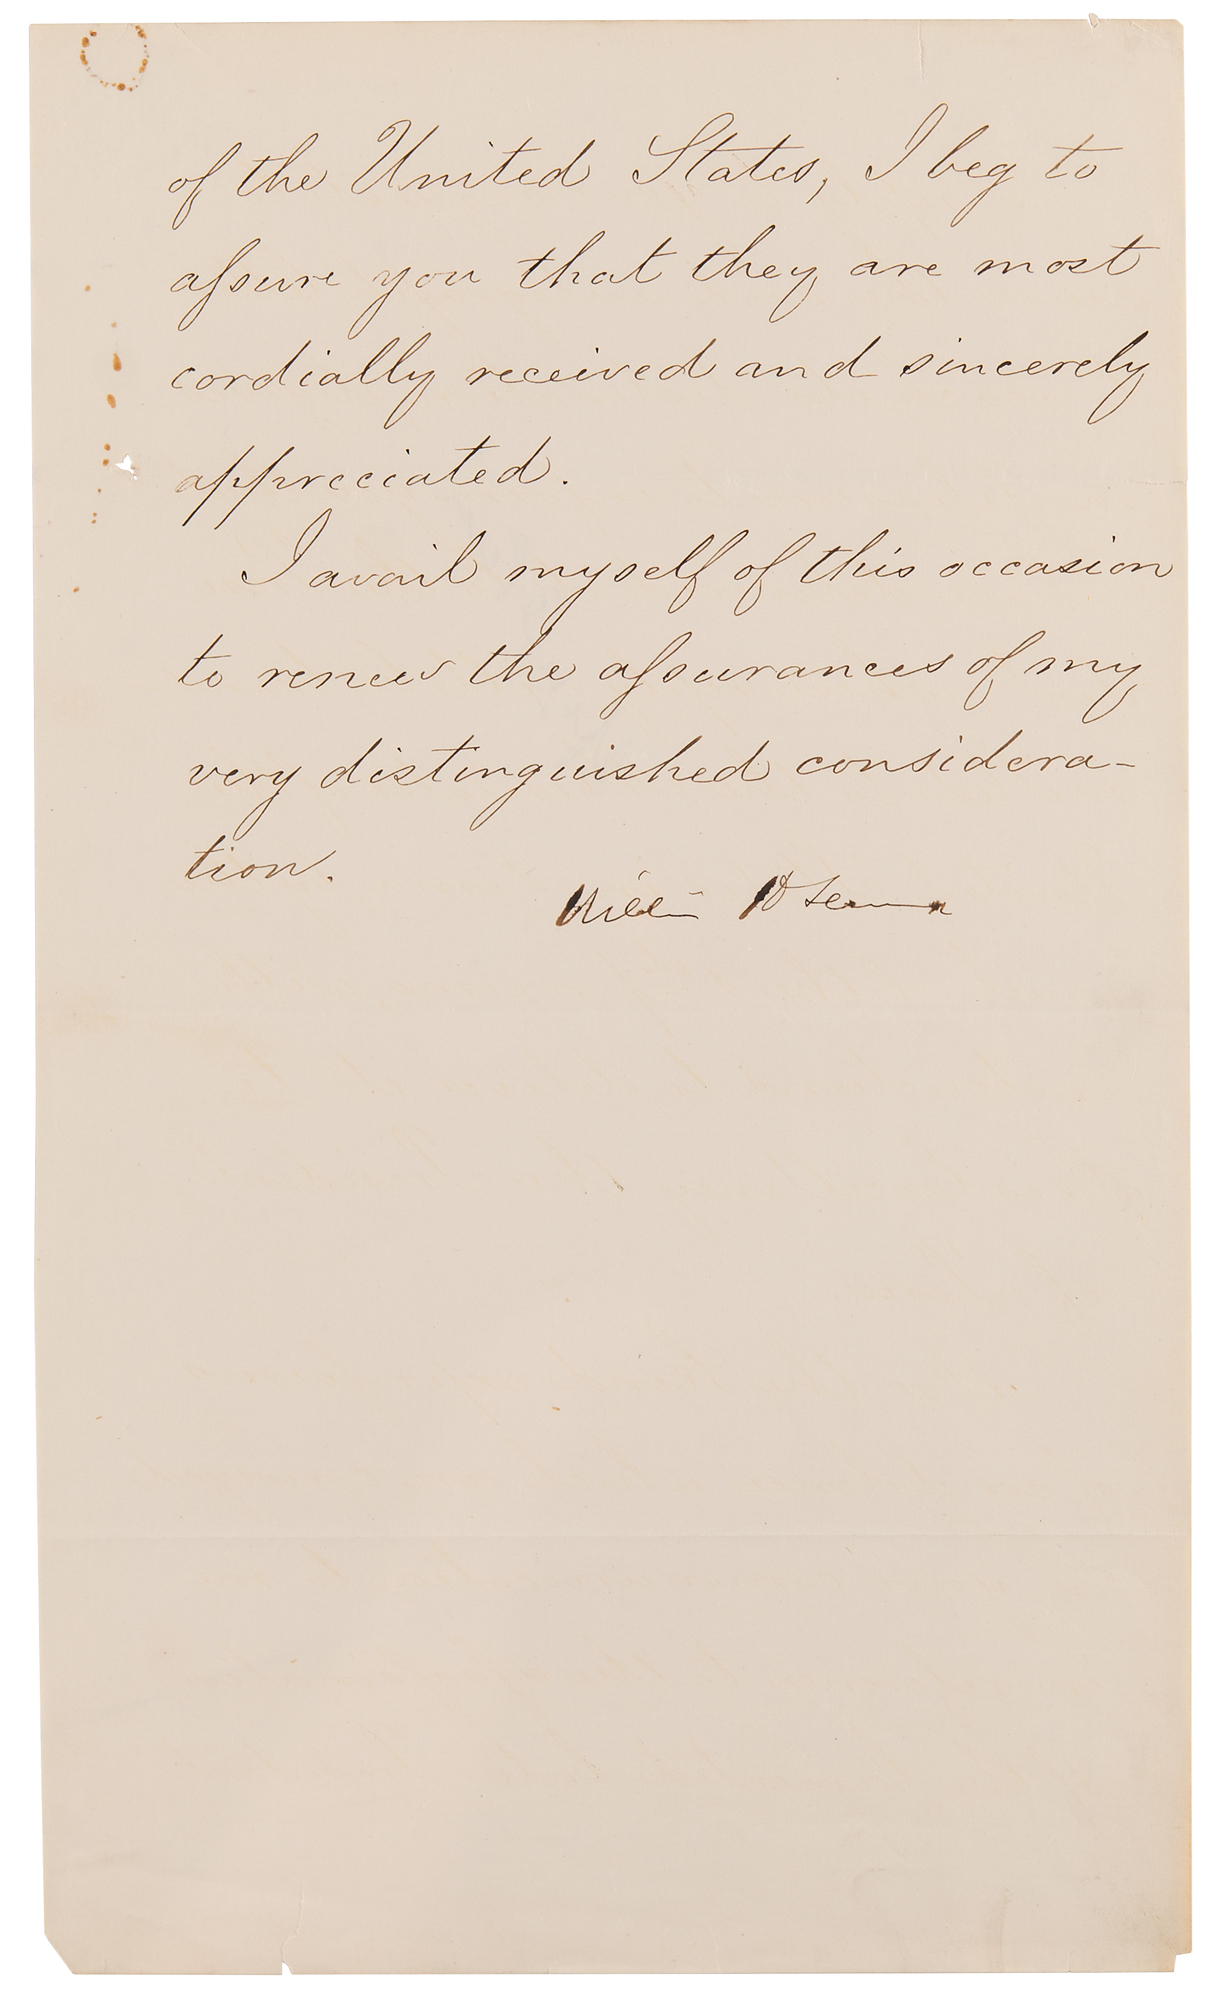 of the United States, I beg to
assure you that they are most
cordially received and sincerely
appreciated.
I avail myself of this occasion
to renew the assurances of my
very distinguished considera-
tion.
William H Seward